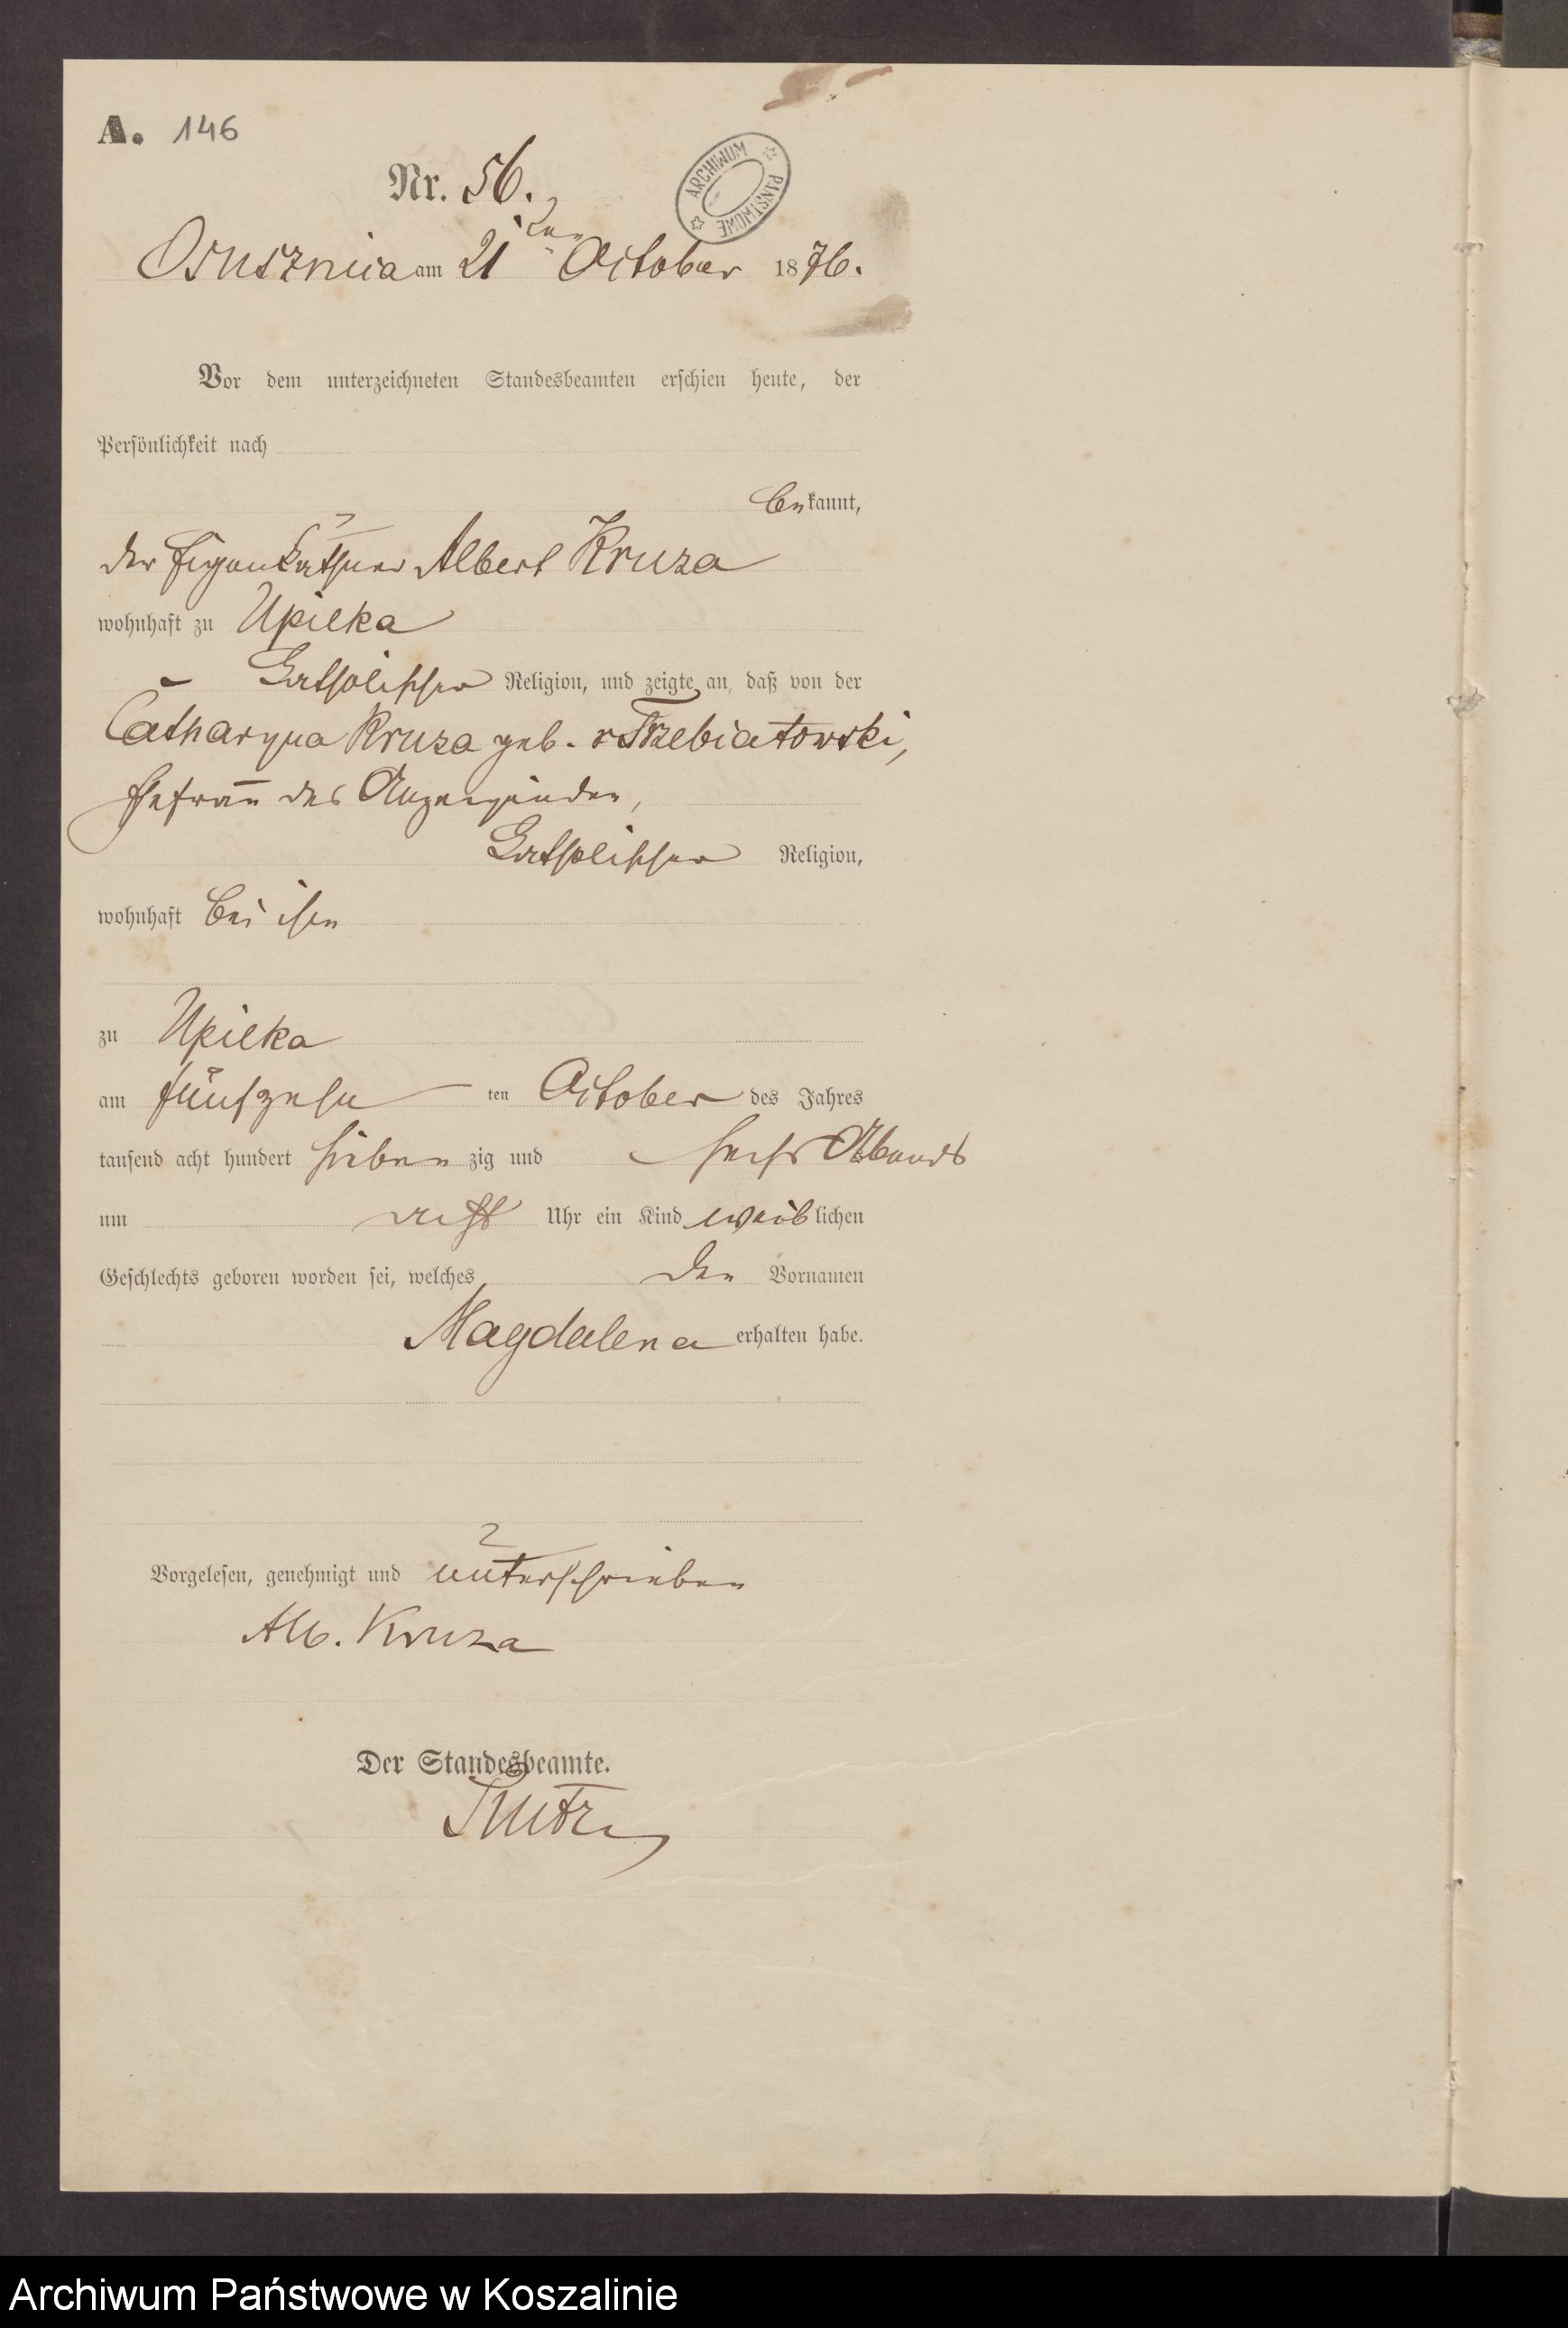 A. 146
Nr. 56.
ARCHIWUM PAŃSTWOWE
Osusznica am 21ten October 1876.
Vor dem unterzeichneten Standesbeamten erschien heute, der
Persönlichkeit nach
bekannt,
der Eigenkäthner Albert Kruza
wohnhaft zu Upilka
katholischer Religion, und zeigte an, daß von der
Catharyna Kruza geb. v Trzebiatowski,
Ehefrau des Anzeigenden,
katholischer Religion,
wohnhaft bei ihm
zu Upilka
am fünfzehn ten October des Jahres
tausend acht hundert sieben zig und sechs Abends
um acht Uhr ein Kind weiblichen
Geschlechts geboren worden sei, welches den Vornamen
Magdalena erhalten habe.
Vorgelesen, genehmigt und unterschrieben
Alb. Kruza
Der Standesbeamte.
Archiwum Państwowe w Koszalinie